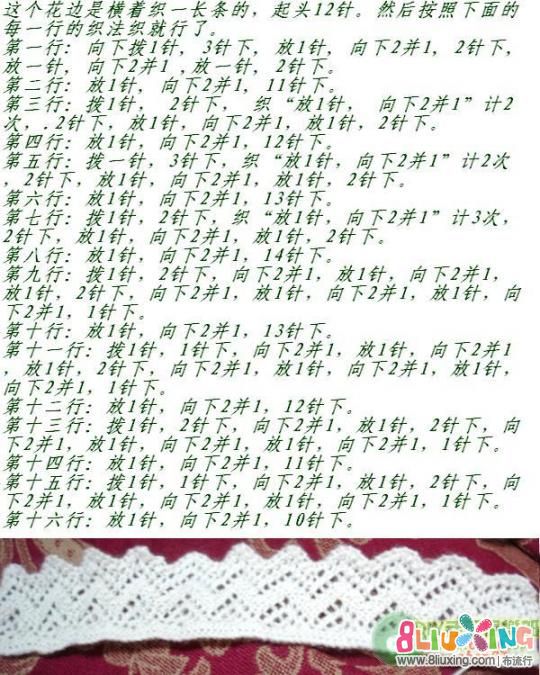 这个花边是横着织一长条的，起头12针。然后按照下面的
每一行的织法织就行了。
第一行：向下拨1针，3针下，放1针，向下2并1，2针下，
放一针，向下2并1，放一针，2针下。
第二行：放1针，向下2并1，11针下。
第三行：拨1针，2针下，织“放1针，向下2并1”计2
次，.2针下，放1针，向下2并1，放1针，2针下。
第四行：放1针，向下2并1，12针下。
第五行：拨一针，3针下，织“放1针，向下2并1”计2次
，2针下，放1针，向下2并1，放1针，2针下。
第六行：放1针，向下2并1，13针下。
第七行：拨1针，2针下，织“放1针，向下2并1”计3次，
2针下，放1针，向下2并1，放1针，2针下。
第八行：放1针，向下2并1，14针下。
第九行：拨1针，2针下，向下2并1，放1针，向下2并1，
放1针，2针下，向下2并1，放1针，向下2并1，放1针，向
下2并1，1针下。
第十行：放1针，向下2并1，13针下。
第十一行：拨1针，1针下，向下2并1，放1针，向下2并1
，放1针，2针下，向下2并1，放1针，向下2并1，放1针，
向下2并1，1针下。
第十二行：放1针，向下2并1，12针下。
第十三行：拨1针，2针下，向下2并1，放1针，2针下，向
下2并1，放1针，向下2并1，放1针，向下2并1，1针下。
第十四行：放1针，向下2并1，11针下。
第十五行：拨1针，1针下，向下2并1，放1针，2针下，向
下2并1，放1针，向下2并1，放1针，向下2并1，1针下。
第十六行：放1针，向下2并1，10针下。
8LIUXING
www.8liuxing.com | 布流行